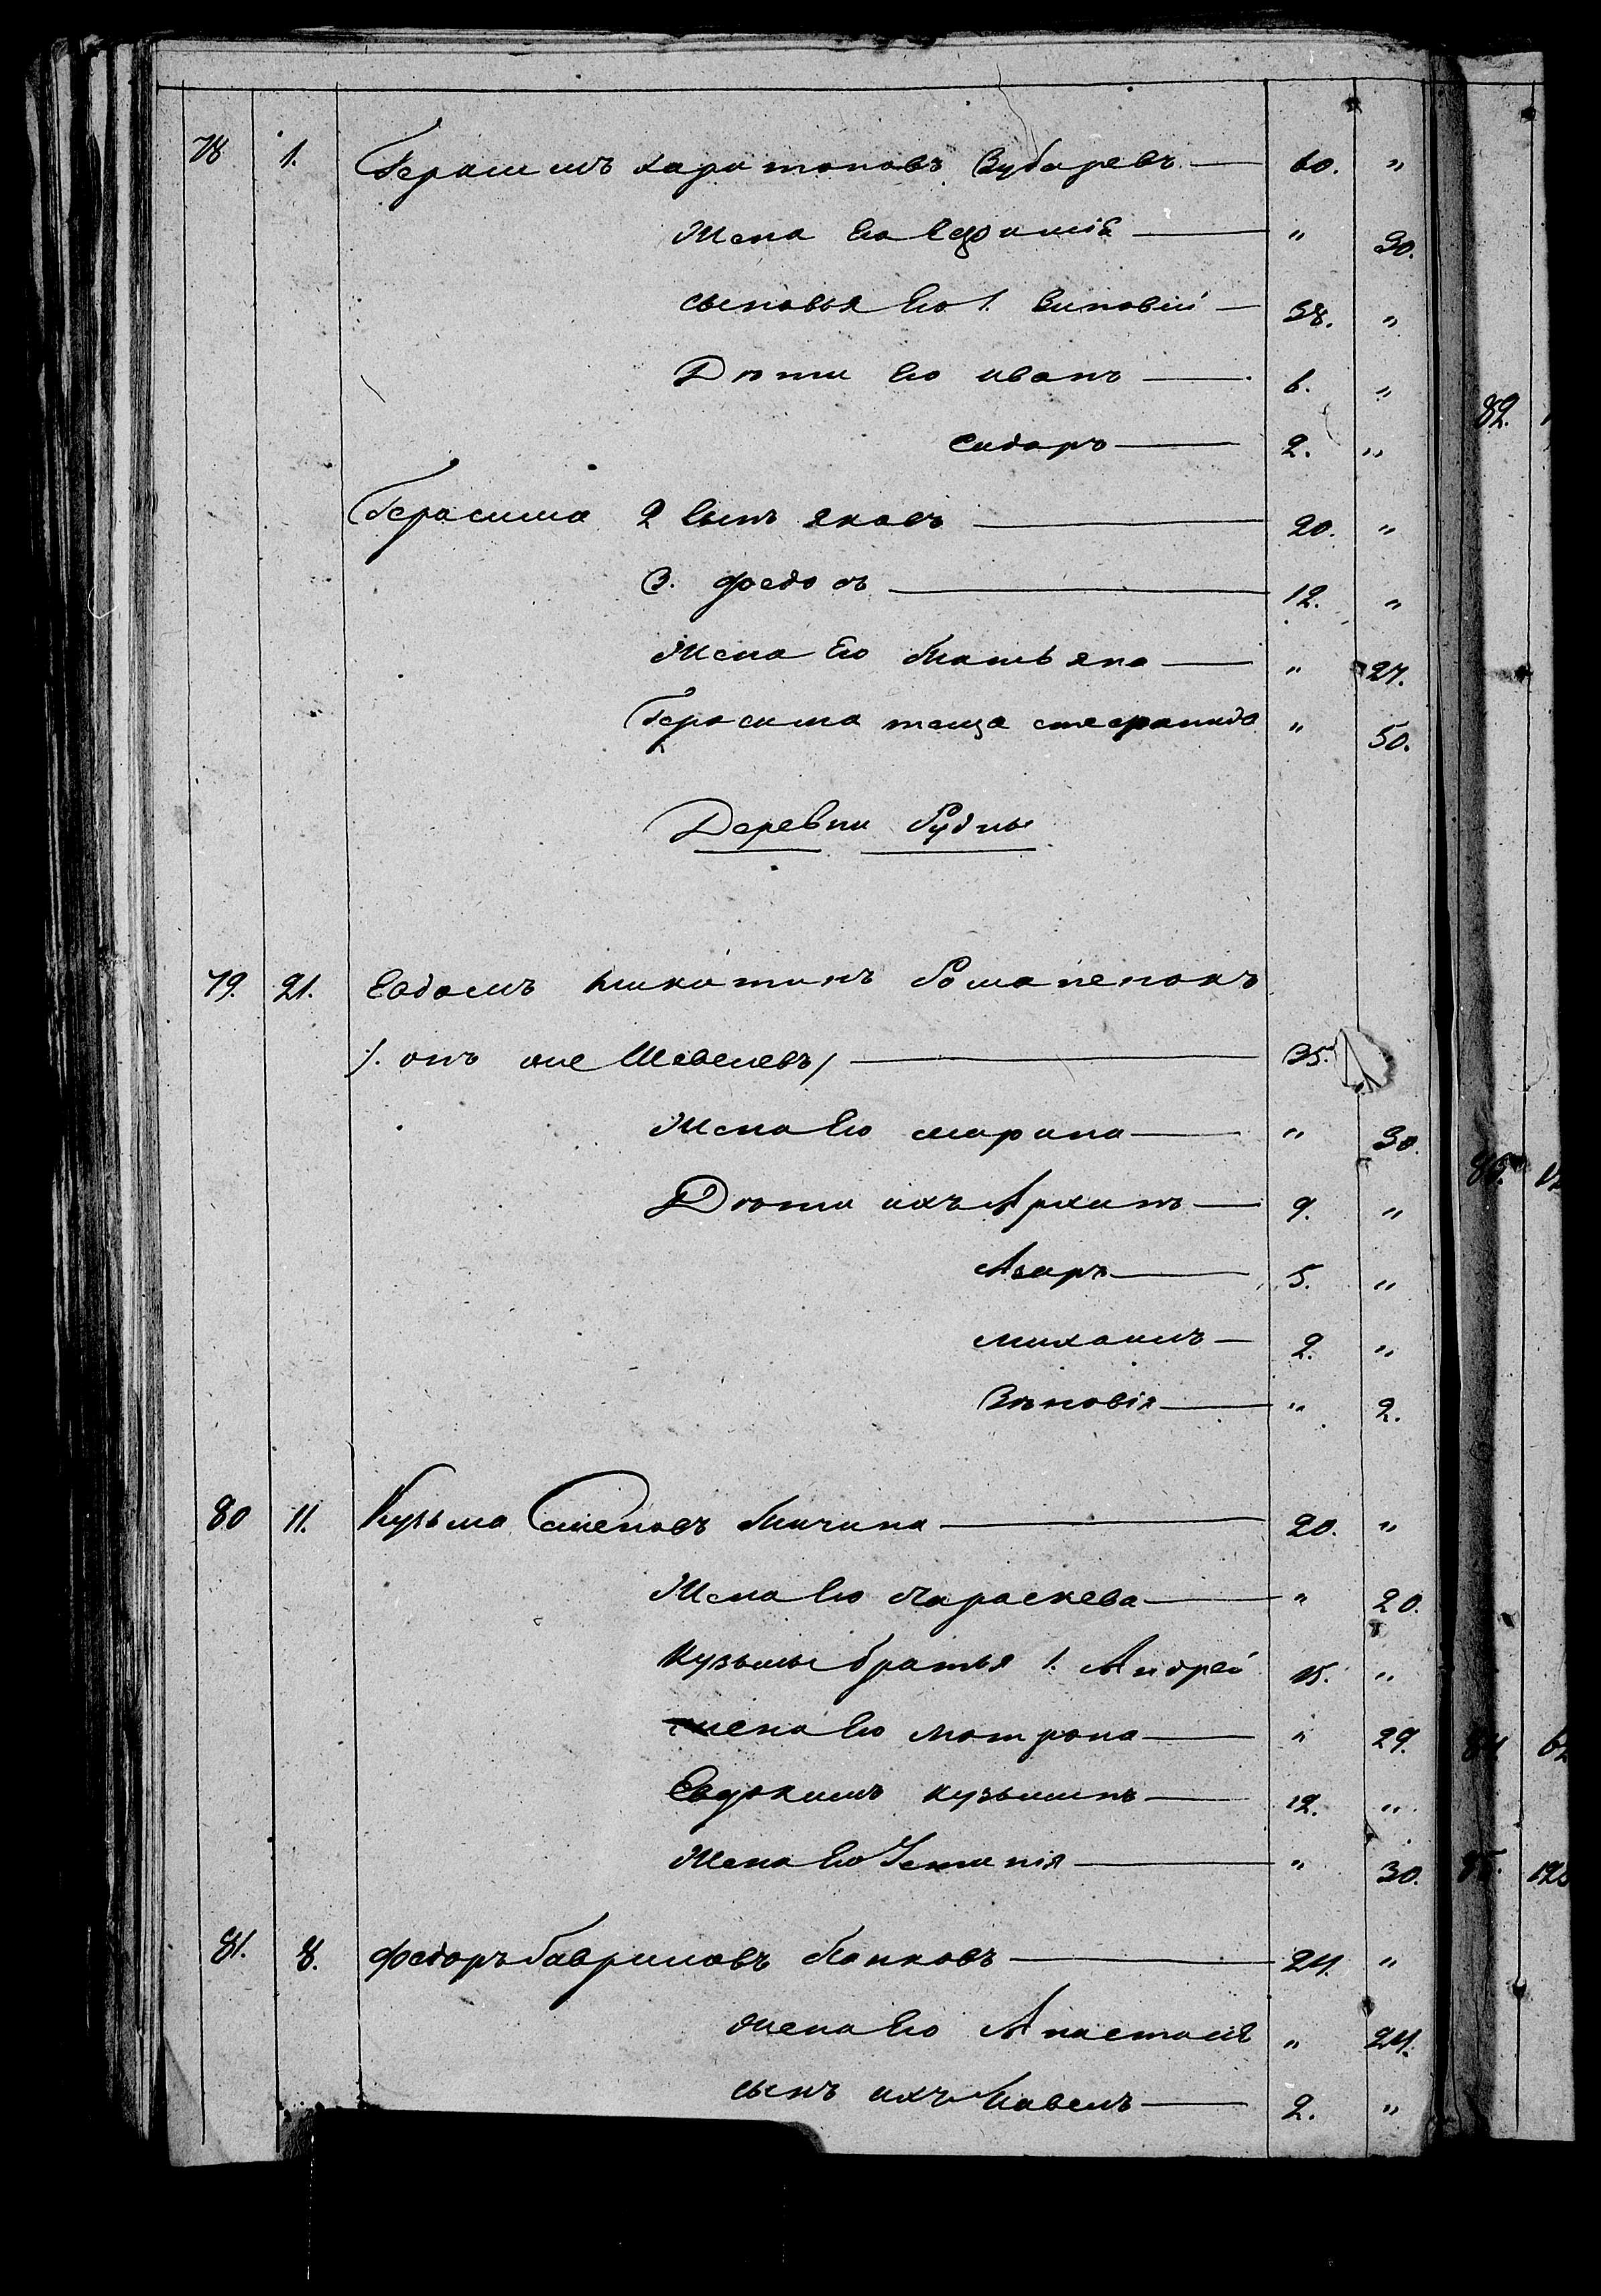 78 1. Герасимъ харитоновъ Зубаревъ — 60. "
Жена Его Ефимія — " 30.
сыновья Его 1. Зиновий — 38. "
Дѣти Его иванъ — 6. "
Сидоръ — 2. "
82.
Герасима 2 Сынъ яковъ — 20. "
3. федосъ — 12. "
Жена Его Татьяна — " 27.
Герасима теща степанида " 50.
Деревни Рудны
79. 21. Евдомъ Никитинъ Романенокъ
/. онъ же Шевелевъ / — 35.
Жена Его марина — " 30.
Дѣти ихъ Архипъ — 9. "
Азаръ — 5. "
михаилъ — 2. "
Зѣновія — " 2.
80 11. Кузьма Степновъ Тичина — 20. "
Жена Его Параскева — " 20.
Кузьмы братья 1. Андрей 15. "
жена Его матрона — " 29.
Евдокимъ кузьминъ — 12. "
Жена Его Устинія — " 30.
81. 8. Федоръ Гавриловъ Панковъ — 24. "
жена Его Анастасія " 24.
сынъ ихъ Павелъ — 2. "